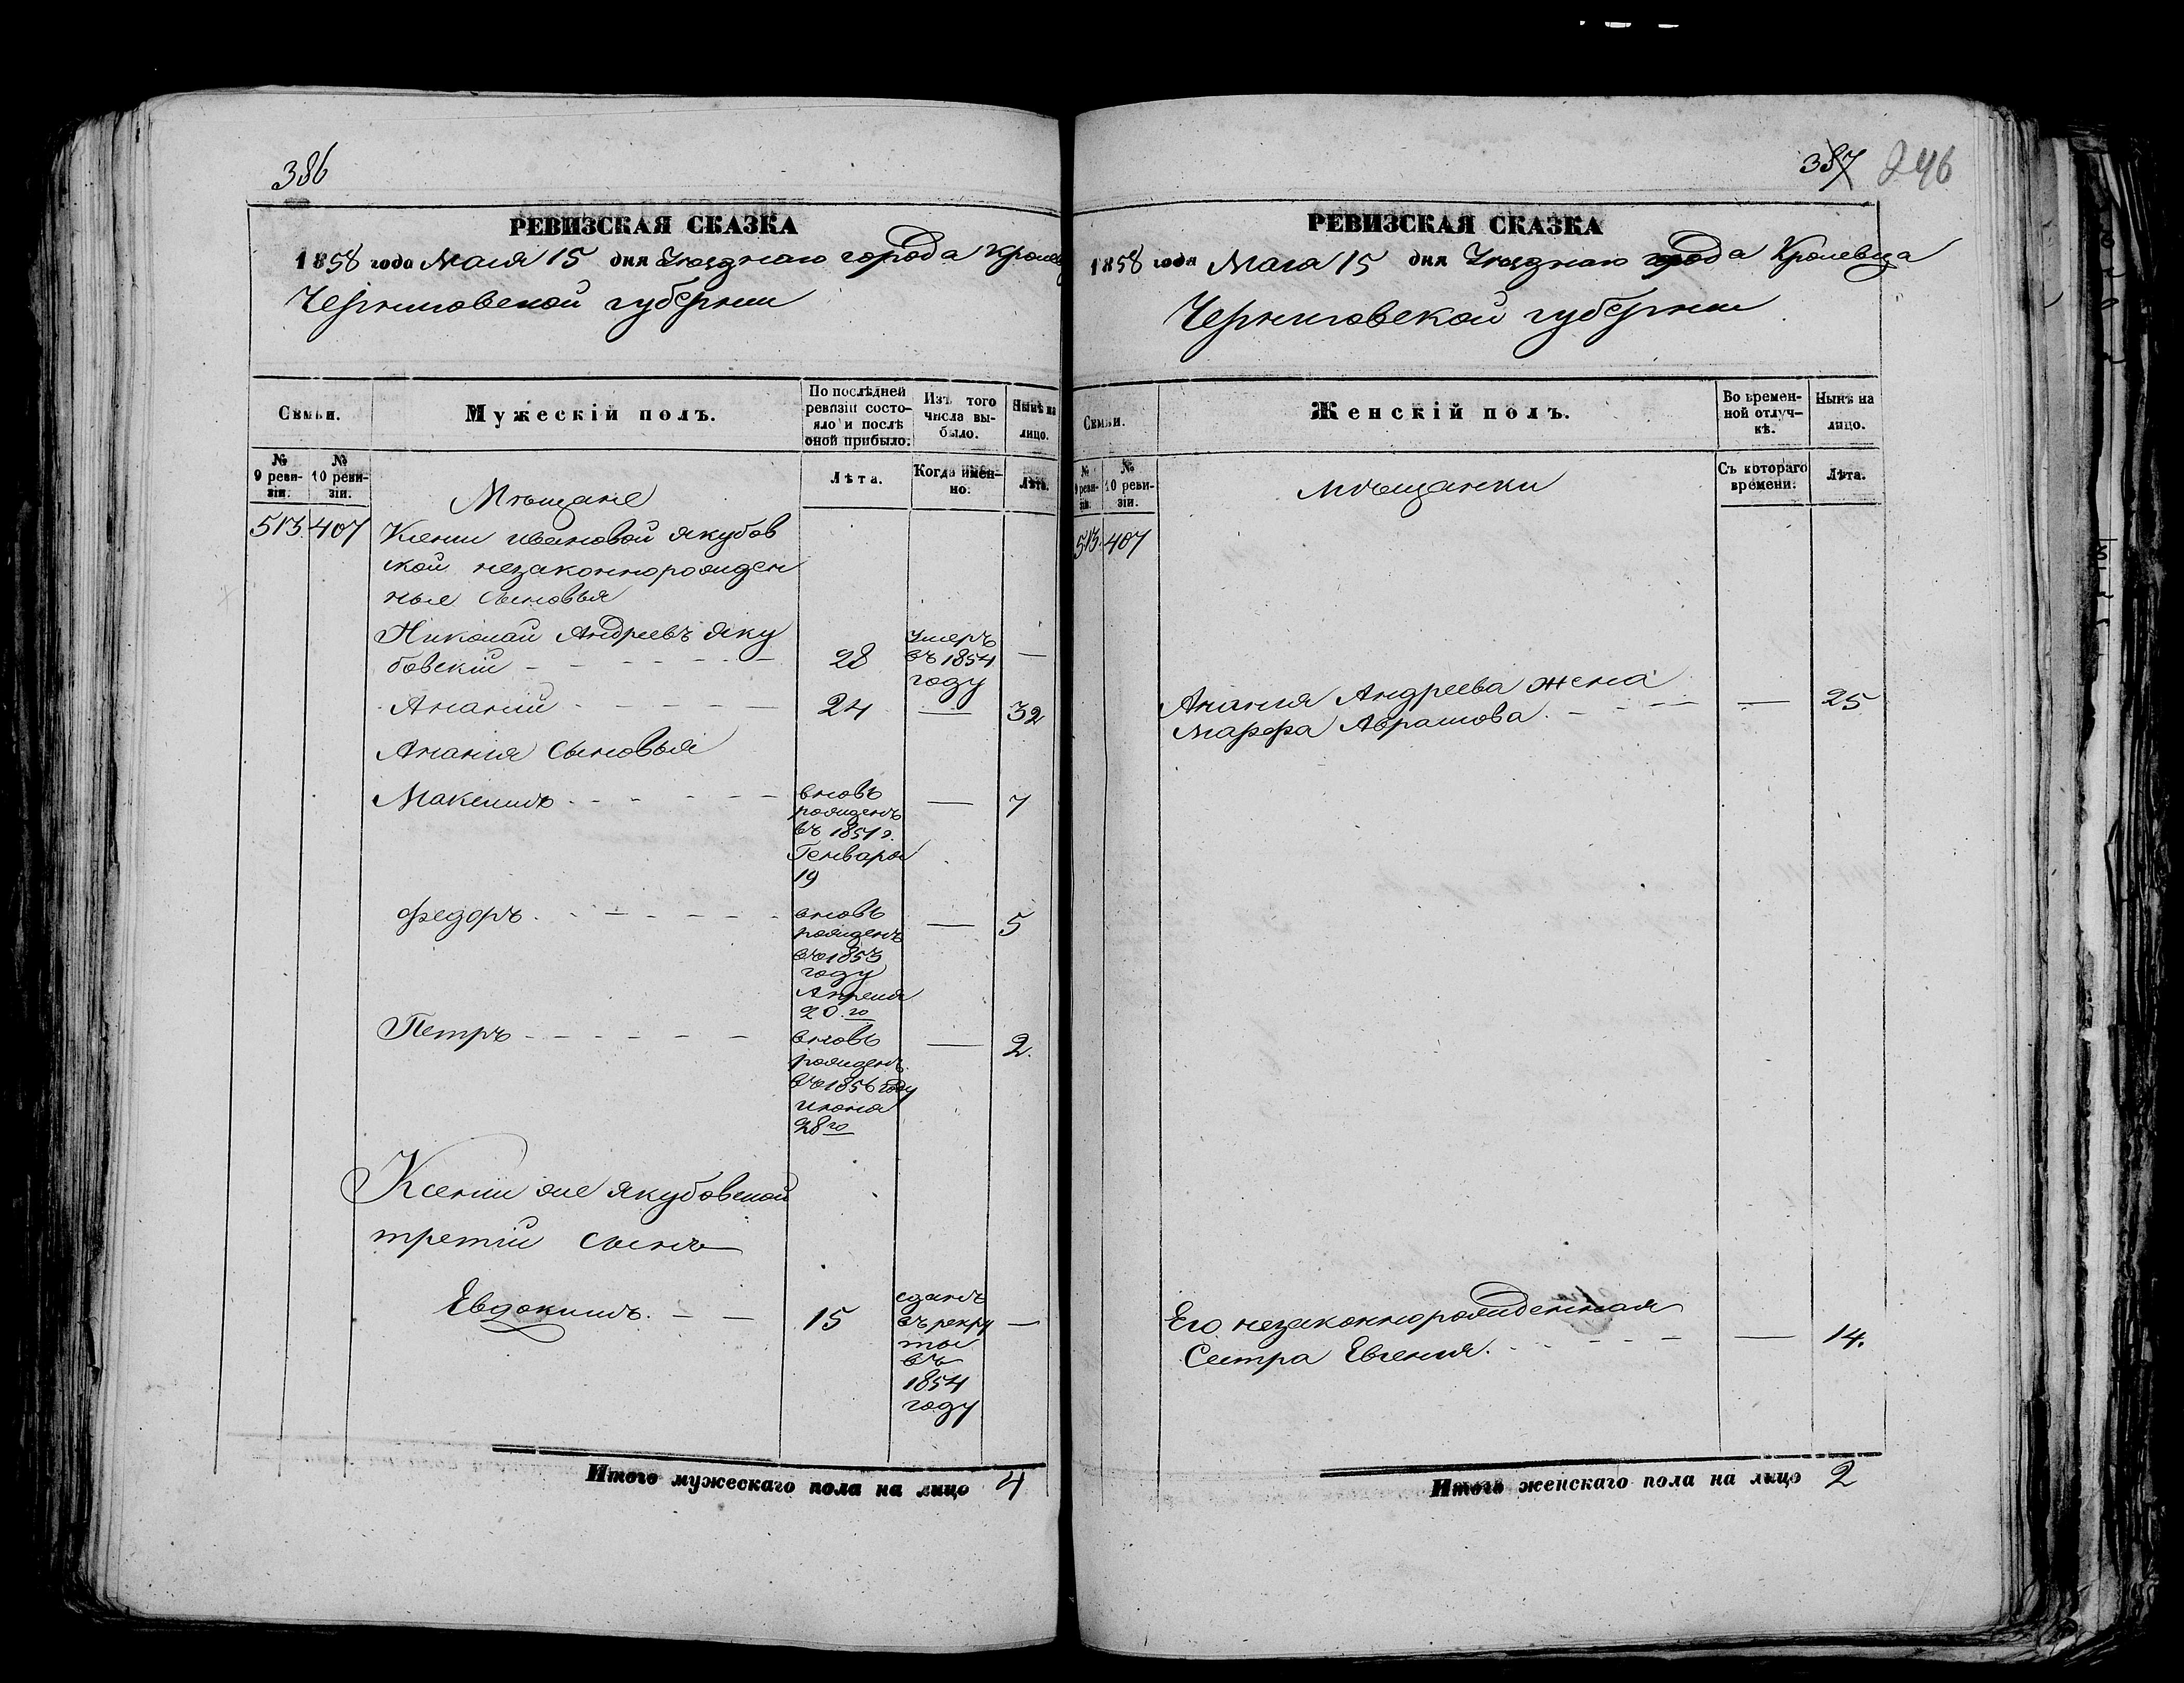 386
РЕВИЗСКАЯ СКАЗКА
1858 года Маія 15 дня Уѣзднаго города Кролев
Черниговской губерніи
Семьи.
Мужескій полъ.
По послѣдней
ревизіи состо-
яло и послѣ
оной прибыло.
Изъ того
числа вы-
было.
Нынѣ на
лицо.
№
9 реви-
зіи.
№
10 реви-
зіи.
Лѣта.
Когда имен-
но.
Лѣта.
Мѣщане
513. 407 Ксеніи Ивановой Якубов
ской незаконнорожден
ные сыновья
Николай Андреевъ Яку
бовскій - - - - - - 28 Умеръ
въ 1854
году —
Ананій - - - - - 24 — 32
Ананія сыновья
Максимъ - - - - - - вновь
рожденъ
въ 1851 г.
Генваря
19 — 7
Федоръ - - - - - - вновь
рожденъ
въ 1853
году
Апреля
20.го — 5
Петръ - - - - - - вновь
рожденъ
въ 1856 году
Июня
28го — 2.
Ксеніи же Якубовской
третій сынъ
Евдокимъ. - - 15 сданъ
въ рекру
ты
въ
1854
году —
Итого мужескаго пола на лицо 4
387 246
РЕВИЗСКАЯ СКАЗКА
1858 года Маія 15 дня Уѣзднаго города Кролевца
Черниговской губерніи
Семьи.
Женскій полъ.
Во времен-
ной отлуч-
кѣ.
Нынѣ на
лицо.
№
9 реви-
зіи.
№
10 реви-
зіи.
Съ котораго
времени.
Лѣта.
Мѣщанки
513. 407
Ананія Андреева жена
Марфа Абрамова. - - - - — 25
Его незаконнорожденная
Сестра Евгенія. - - - - — 14.
Итого женскаго пола на лицо 2